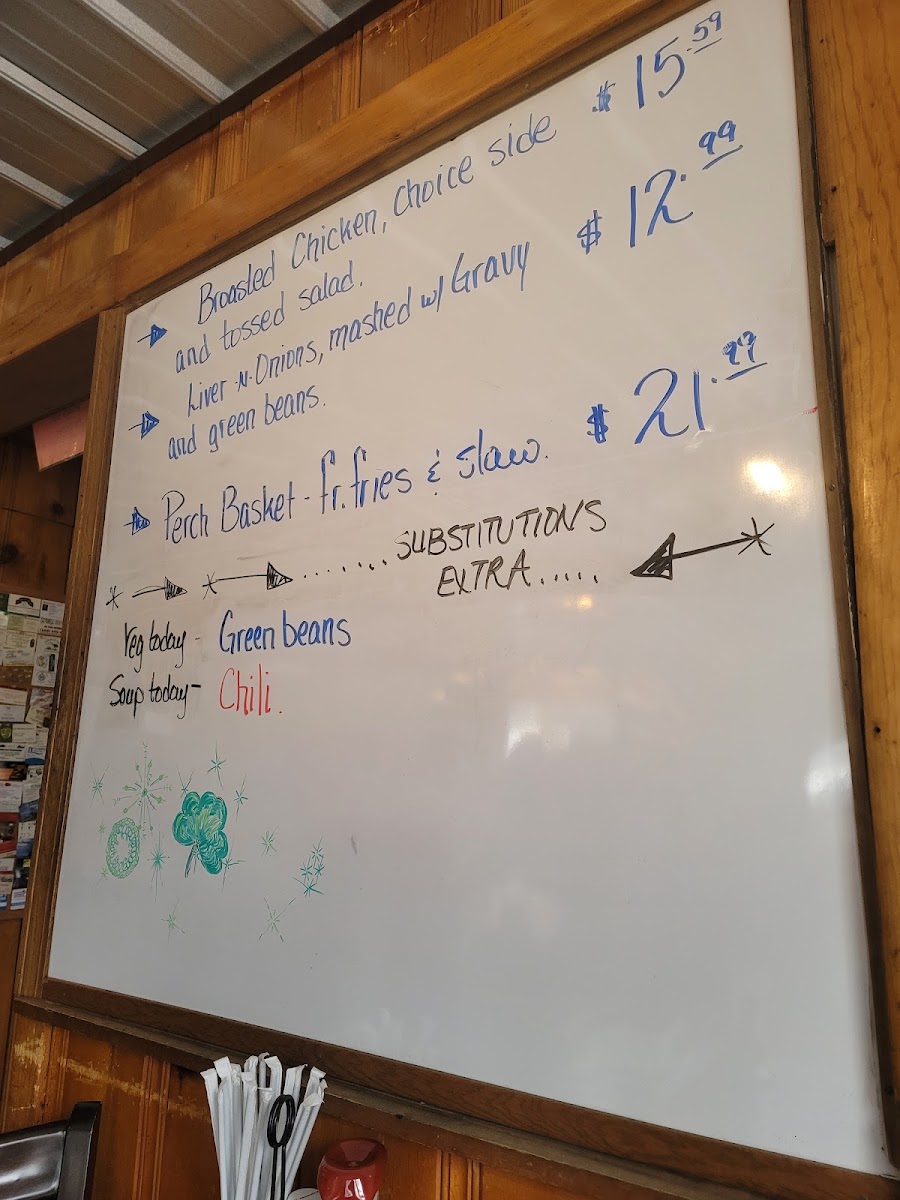 Broasted Chicken, Choice side $ 15.59
and tossed salad.
Liver-N-Onions, mashed w/ Gravy $ 12.99
and green beans.
Perch Basket - fr. fries & slaw. $ 21.99
SUBSTITUTIONS
EXTRA.....
Veg today - Green beans
Soup today - Chili.